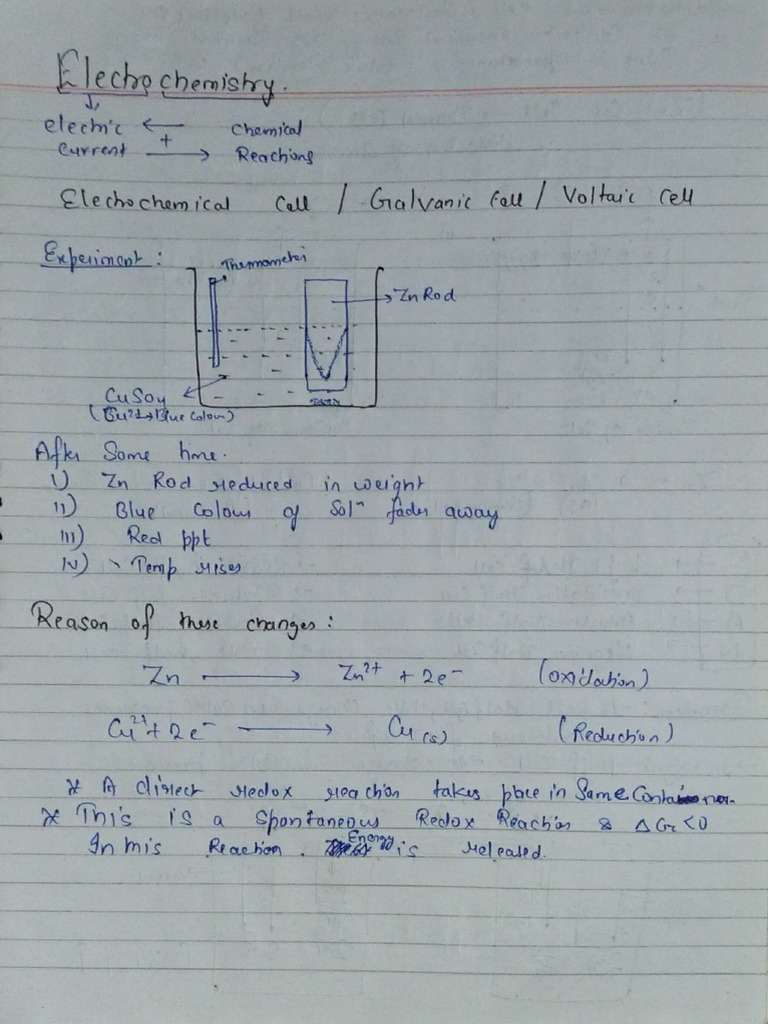 Electrochemistry.
electric ← Chemical
+
Current → Reactions
Electrochemical Cell / Galvanic Cell / Voltaic Cell
Experiment :
Thermometer
→ Zn Rod
CuSO4
(Cu²⁺→Blue Colour)
After Some time.
I) Zn Rod reduced in weight
II) Blue Colour of Solⁿ fades away
III) Red ppt
IV) Temp rises
Reason of these changes :
Zn → Zn²⁺ + 2e⁻ (Oxidation)
Cu²⁺ + 2e⁻ → Cu(s) (Reduction)
* A direct redox reaction takes place in Same Container.
* This is a Spontaneous Redox Reaction & ΔG<0
In this Reaction. Energy is released.